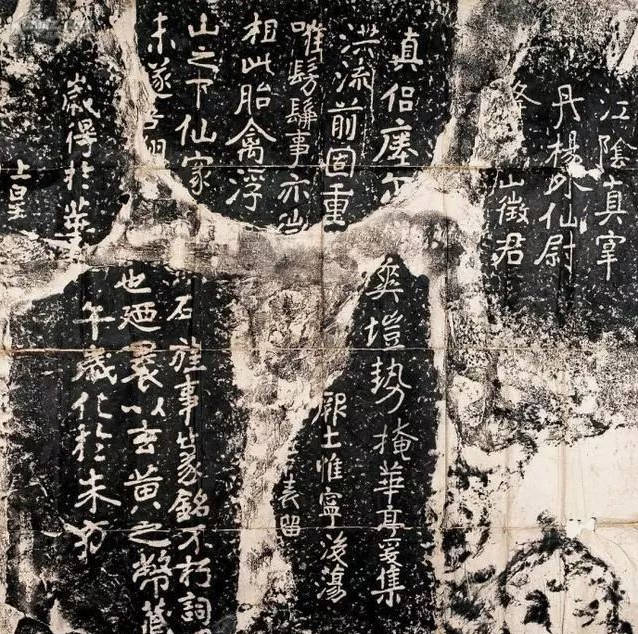 江陰真宰
丹楊外仙尉
山徵君
真侶瘞爾
洪流前固重
唯髣髴事亦
相此胎禽浮
山之下仙家
未遂吾翔
歲得於華
上皇
爽塏勢掩華亭爰集
厥土惟寧後蕩
表留
石旌事篆銘不朽詞
也廼裹以玄黃之幣藏
午歲化於朱方